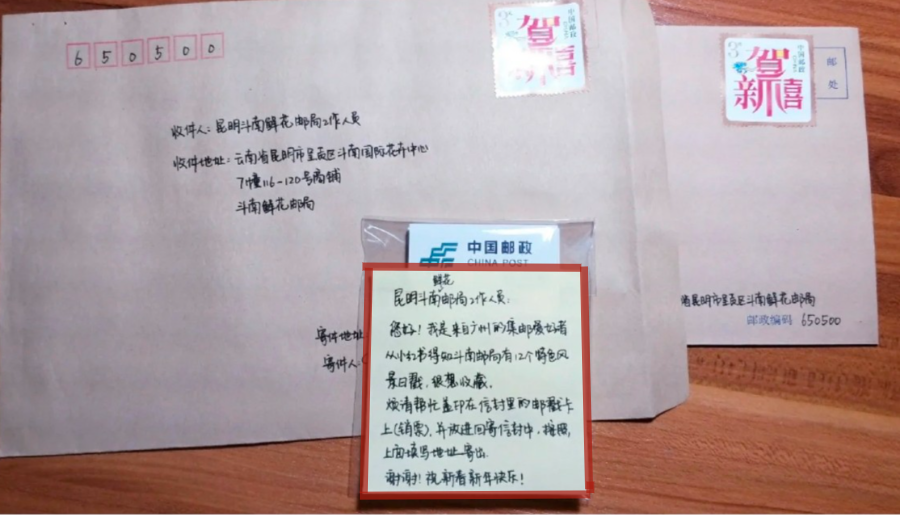 650500
中国邮政
贺新禧
收件人：昆明斗南鲜花邮局工作人员
收件地址：云南省昆明市呈贡区斗南国际花卉中心
7幢116-120号商铺
斗南鲜花邮局
寄件地址
寄件人：
中国邮政
贺新禧
邮
处
省昆明市呈贡区斗南鲜花邮局
邮政编码 650500
中国邮政
CHINA POST
鲜花
昆明斗南邮局工作人员：
您好！我是来自广州的集邮爱好者
从小红书得知斗南邮局有12个特色风
景日戳，很想收藏。
烦请帮忙盖印在信封里的邮戳卡
上(销票)，并放进回寄信封中，按照
上面填写地址寄出.
谢谢！祝新春新年快乐！